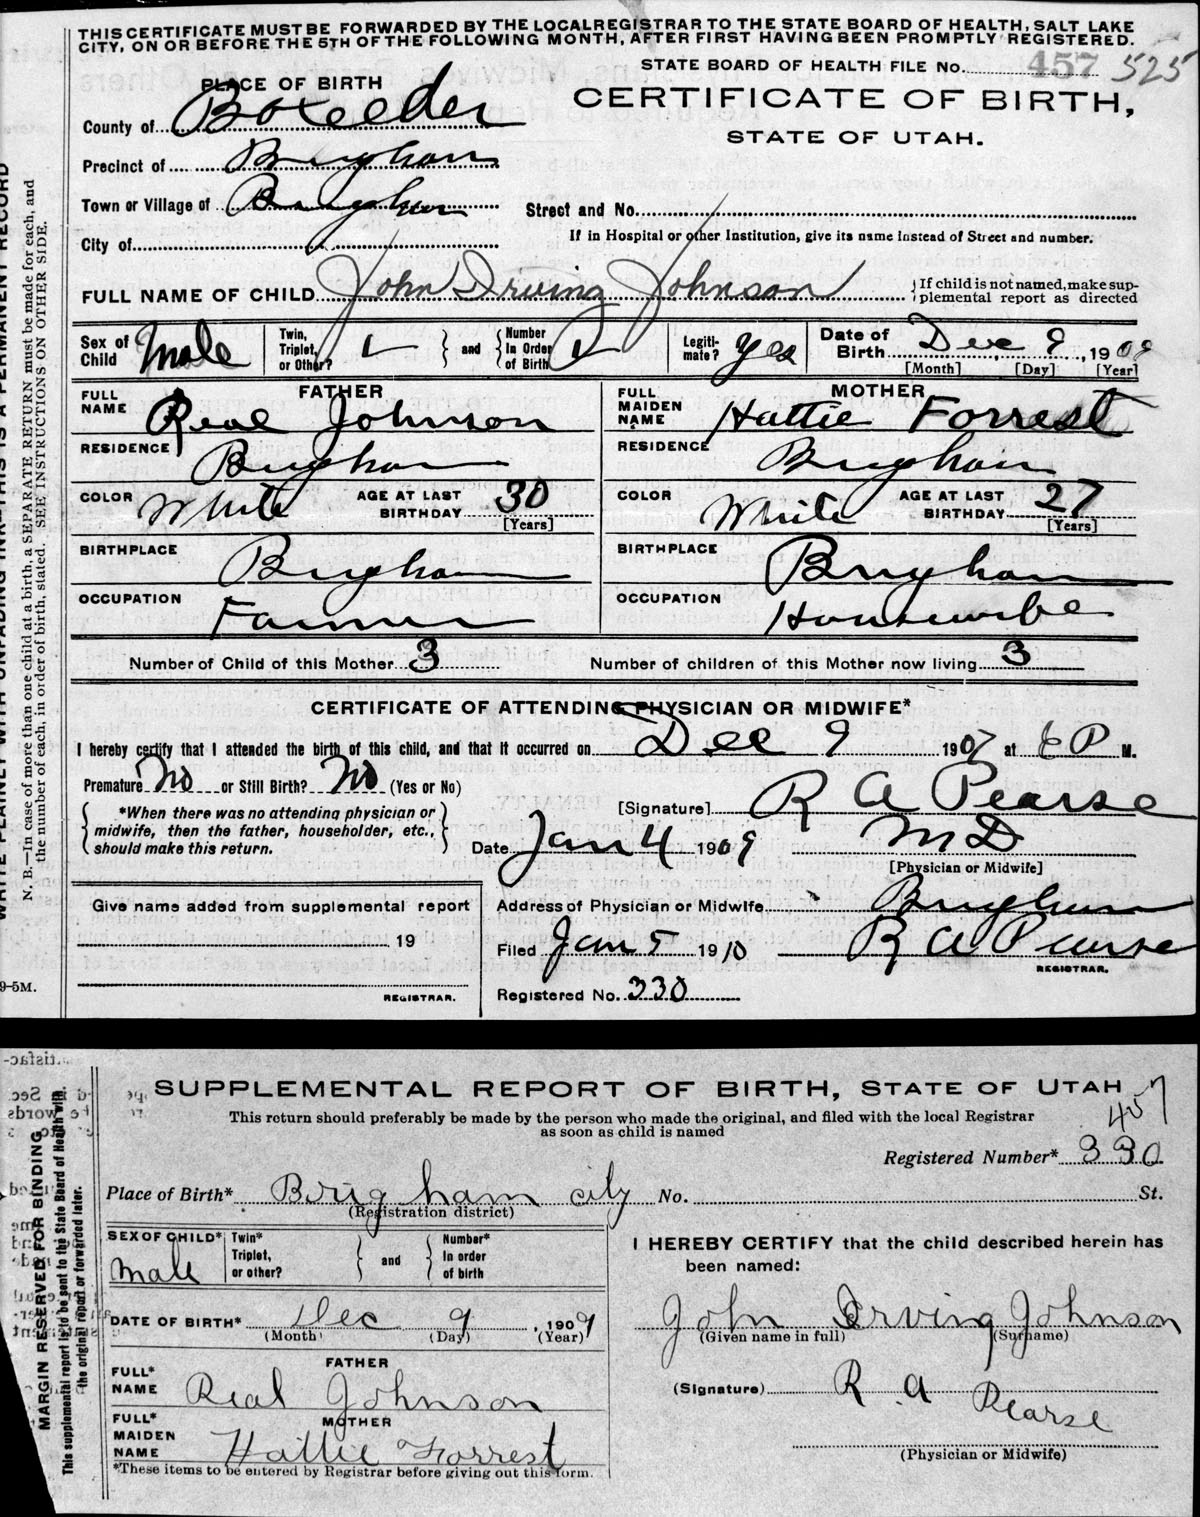 THIS CERTIFICATE MUST BE FORWARDED BY THE LOCAL REGISTRAR TO THE STATE BOARD OF HEALTH, SALT LAKE
CITY, ON OR BEFORE THE 5TH OF THE FOLLOWING MONTH, AFTER FIRST HAVING BEEN PROMPTLY REGISTERED.
STATE BOARD OF HEALTH FILE No. 457 525
PLACE OF BIRTH
CERTIFICATE OF BIRTH,
STATE OF UTAH.
County of Boxelder
Precinct of Brigham
Town or Village of Brigham
Street and No.
City of
If in Hospital or other Institution, give its name instead of Street and number.
FULL NAME OF CHILD John Irving Johnson
If child is not named, make supplemental report as directed
Sex of Child Male
Twin, Triplet, or Other? 1 and Number In Order of Birth 1
Legitimate? Yes
Date of Birth Dec 9, 1909
[Month] [Day] [Year]
FATHER
FULL NAME Real Johnson
MOTHER
FULL MAIDEN NAME Hattie Forrest
RESIDENCE Brigham
RESIDENCE Brigham
COLOR White AGE AT LAST BIRTHDAY 30 [Years]
COLOR White AGE AT LAST BIRTHDAY 27 [Years]
BIRTHPLACE Brigham
BIRTHPLACE Brigham
OCCUPATION Farmer
OCCUPATION Housewife
Number of Child of this Mother 3
Number of children of this Mother now living 3
CERTIFICATE OF ATTENDING PHYSICIAN OR MIDWIFE*
I hereby certify that I attended the birth of this child, and that it occurred on Dec 9 1909 at 6 P M.
Premature No or Still Birth? No (Yes or No)
*When there was no attending physician or
midwife, then the father, householder, etc.,
should make this return.
[Signature] R A Pearse
Date Jan 4 1909 M D
[Physician or Midwife]
Give name added from supplemental report
19
REGISTRAR.
Address of Physician or Midwife Brigham
Filed Jan 5 1910 R A Pearse
REGISTRAR.
Registered No. 330
9-5M.
WRITE PLAINLY WITH UNFADING INK—THIS IS A PERMANENT RECORD
N. B.—In case of more than one child at a birth, a SEPARATE RETURN must be made for each, and
the number of each, in order of birth, stated. SEE INSTRUCTIONS ON OTHER SIDE.
SUPPLEMENTAL REPORT OF BIRTH, STATE OF UTAH
457
This return should preferably be made by the person who made the original, and filed with the local Registrar
as soon as child is named
Registered Number* 330
Place of Birth* Brigham city No. St.
(Registration district)
SEX OF CHILD* Male
Twin* Triplet, or other? and Number* In order of birth
I HEREBY CERTIFY that the child described herein has
been named:
DATE OF BIRTH* Dec 9, 1909
(Month) (Day) (Year)
John Irving Johnson
(Given name in full) (Surname)
FATHER
FULL* NAME Real Johnson
(Signature) R A Pearse
MOTHER
FULL* MAIDEN NAME Hattie Forrest
(Physician or Midwife)
*These items to be entered by Registrar before giving out this form.
MARGIN RESERVED FOR BINDING
This supplemental report is to be sent to the State Board of Health with
the original report or forwarded later.